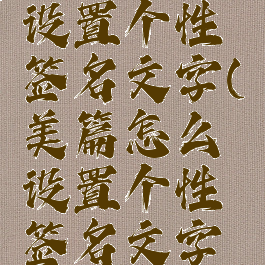 设置个性
签名文字(
美篇怎么
设置个性
签名文字